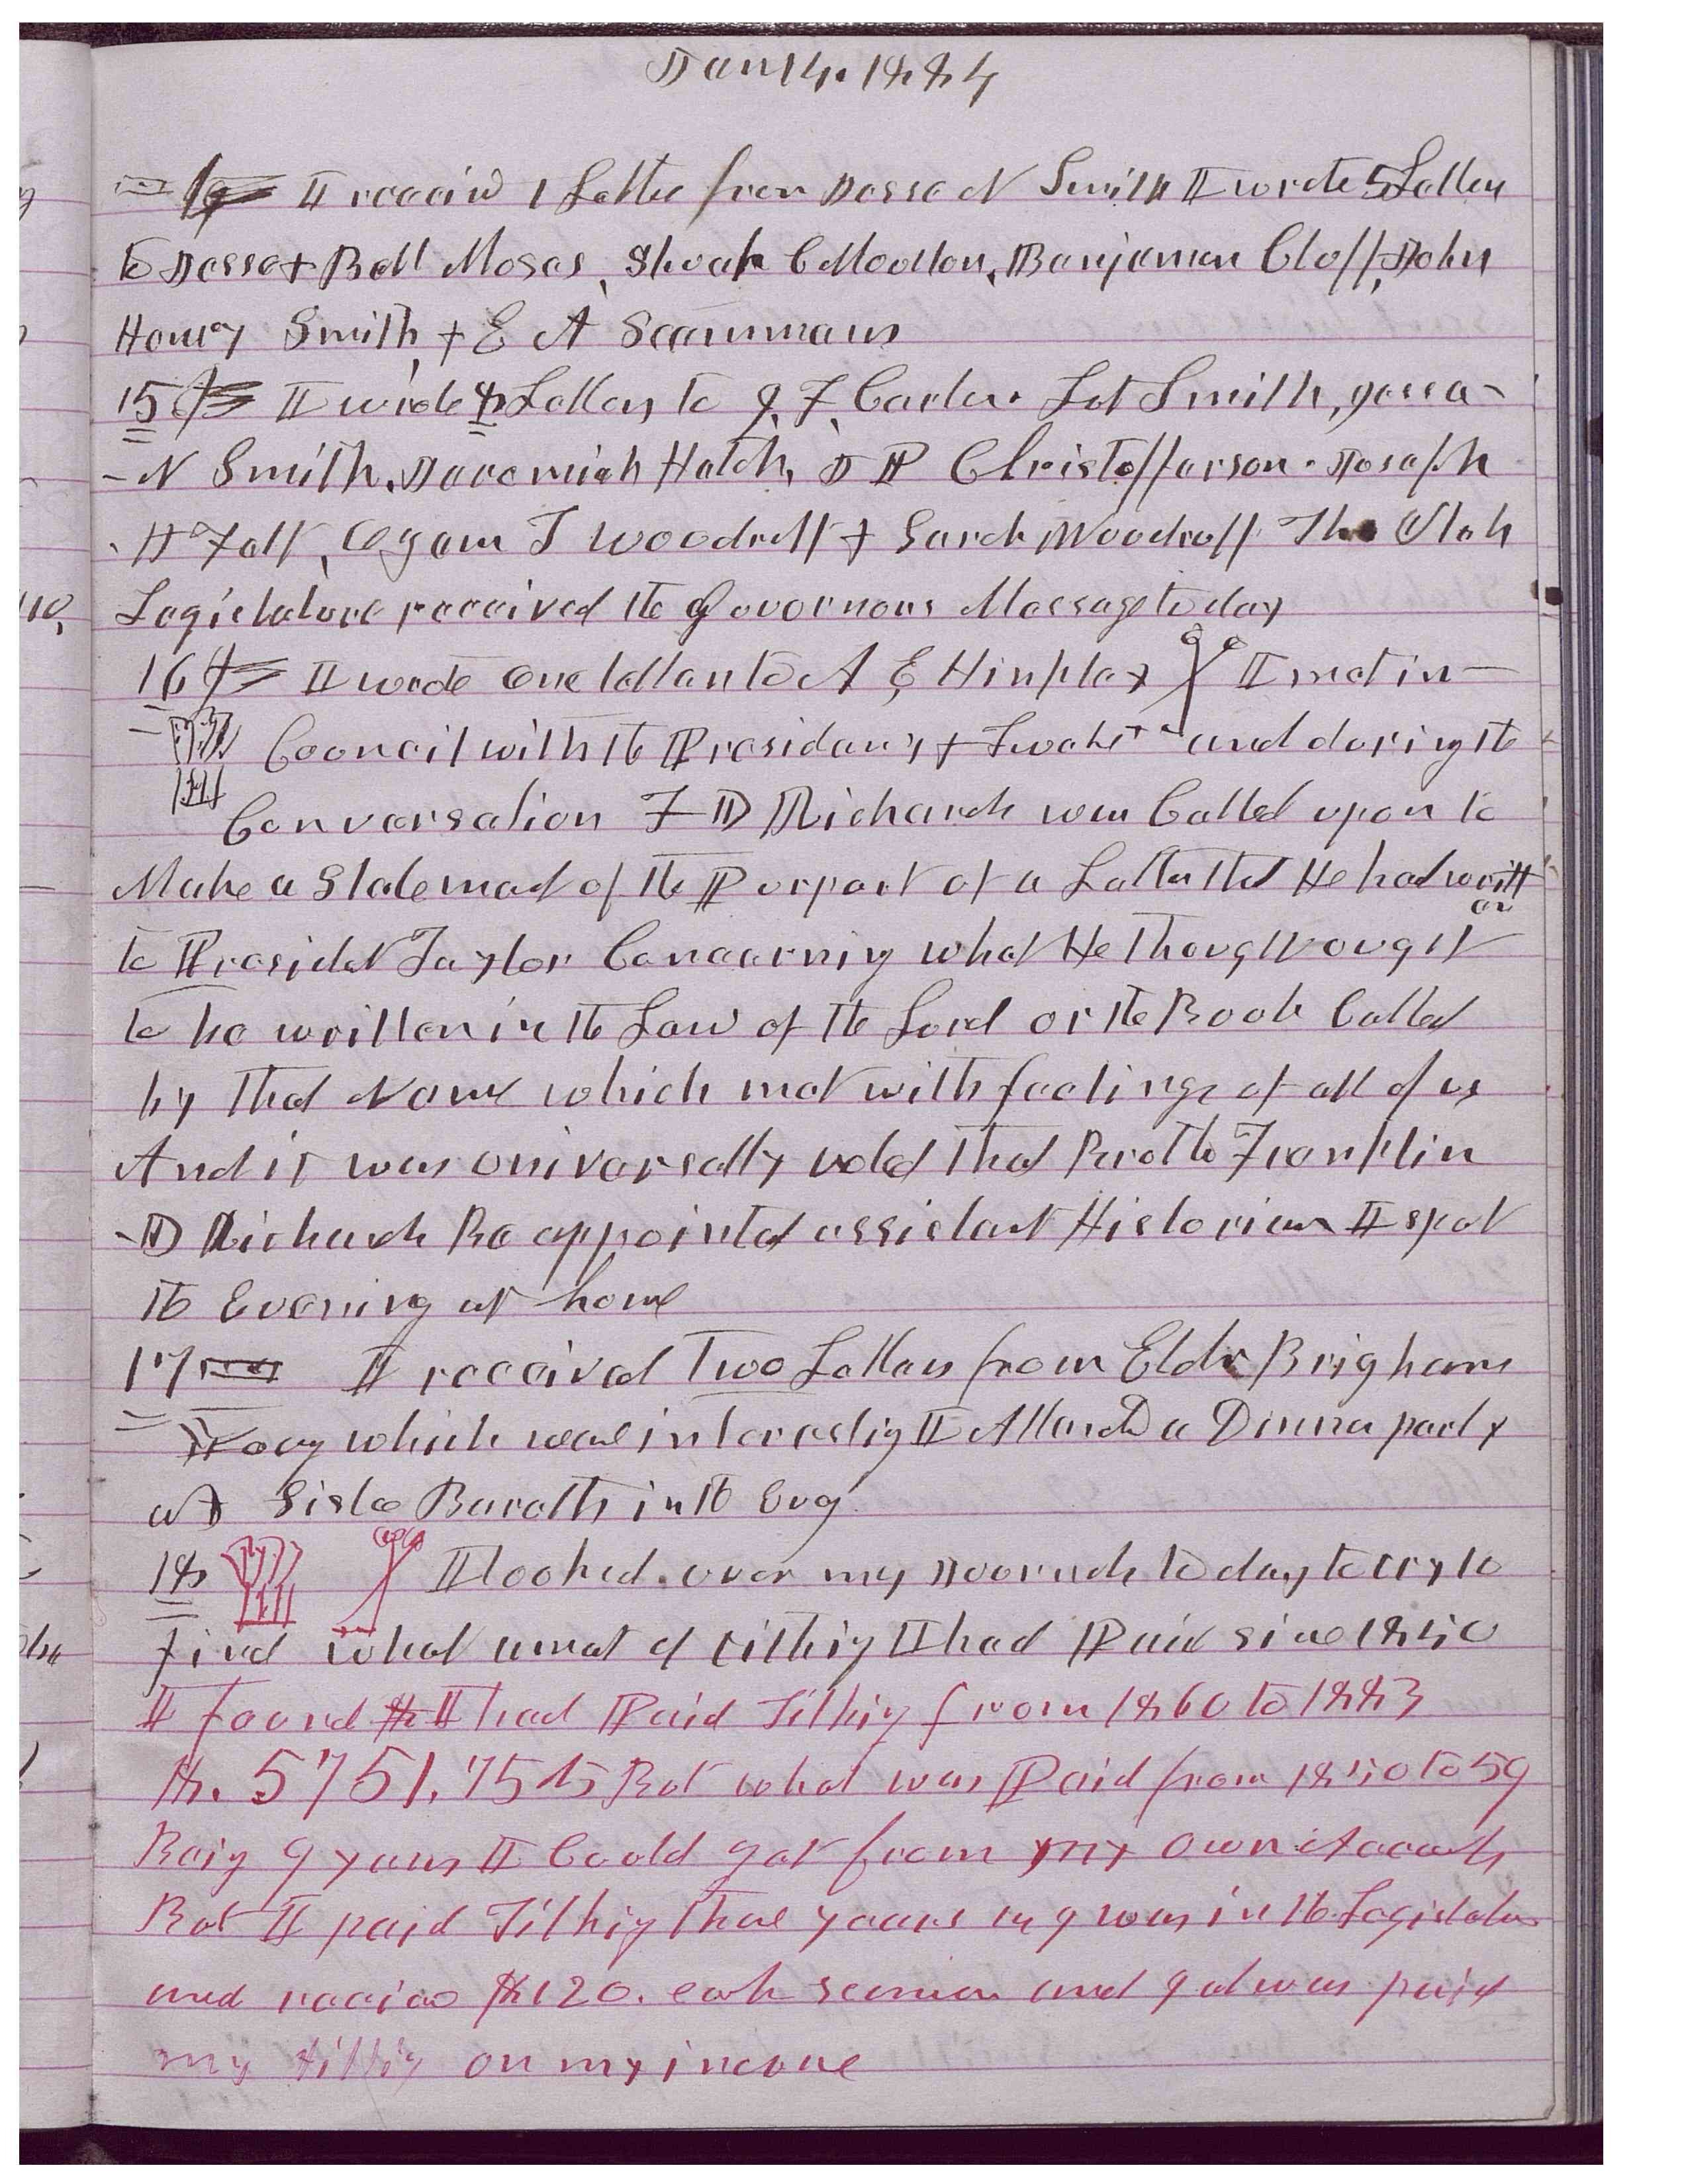 Jan 14. 1884
14 I receivd 1 Letter from Jesse N Smith I wrote 5 Letters
to Jesse + Bell Moses, Shuah C Moulton, Benjaman Cluff, John
Henry Smith, + E A Scammans
15th I wrote 8 Letters to J. F. Carter. Lot Smith, Jesse
- N Smith, Jeremiah Hatch, D P Christofferson. Joseph
H Fall, Ozem T Woodruff + Sarah Woodruff The Utah
Legislature received the Governours Message to day
16th I wrote one letter to A E Hinkley I met in
Council with the Presidency + Twelve and during the
Conversation F D Richards was Called upon to
Make a Statement of the Purport of a Letter that He had writt
en
to President Taylor Concerning what He thought ought
to be written in the Law of the Lord or the Book Called
by that Name which met with feelings of all of us
And it was universally voted that Brother Franklin
- D Richards Be appointed assistant Historian I spent
the Evening at home
17 I received Two Letters from Elder Brigham
Young which were interesting I Attended a Dinner party
at Sister Barratts in the Evg
18 I looked over my Journals to day to try to
find what amount of tithing I had Paid since 1850
I found I had Paid Tithing from 1860 to 1883
$5751.75 But what was Paid from 1850 to 59
Being 9 years I Could get from my own Accounts
But I paid Tithing those years as I was in the Legislature
and receivd $120. each session and I always paid
my tithing on my income